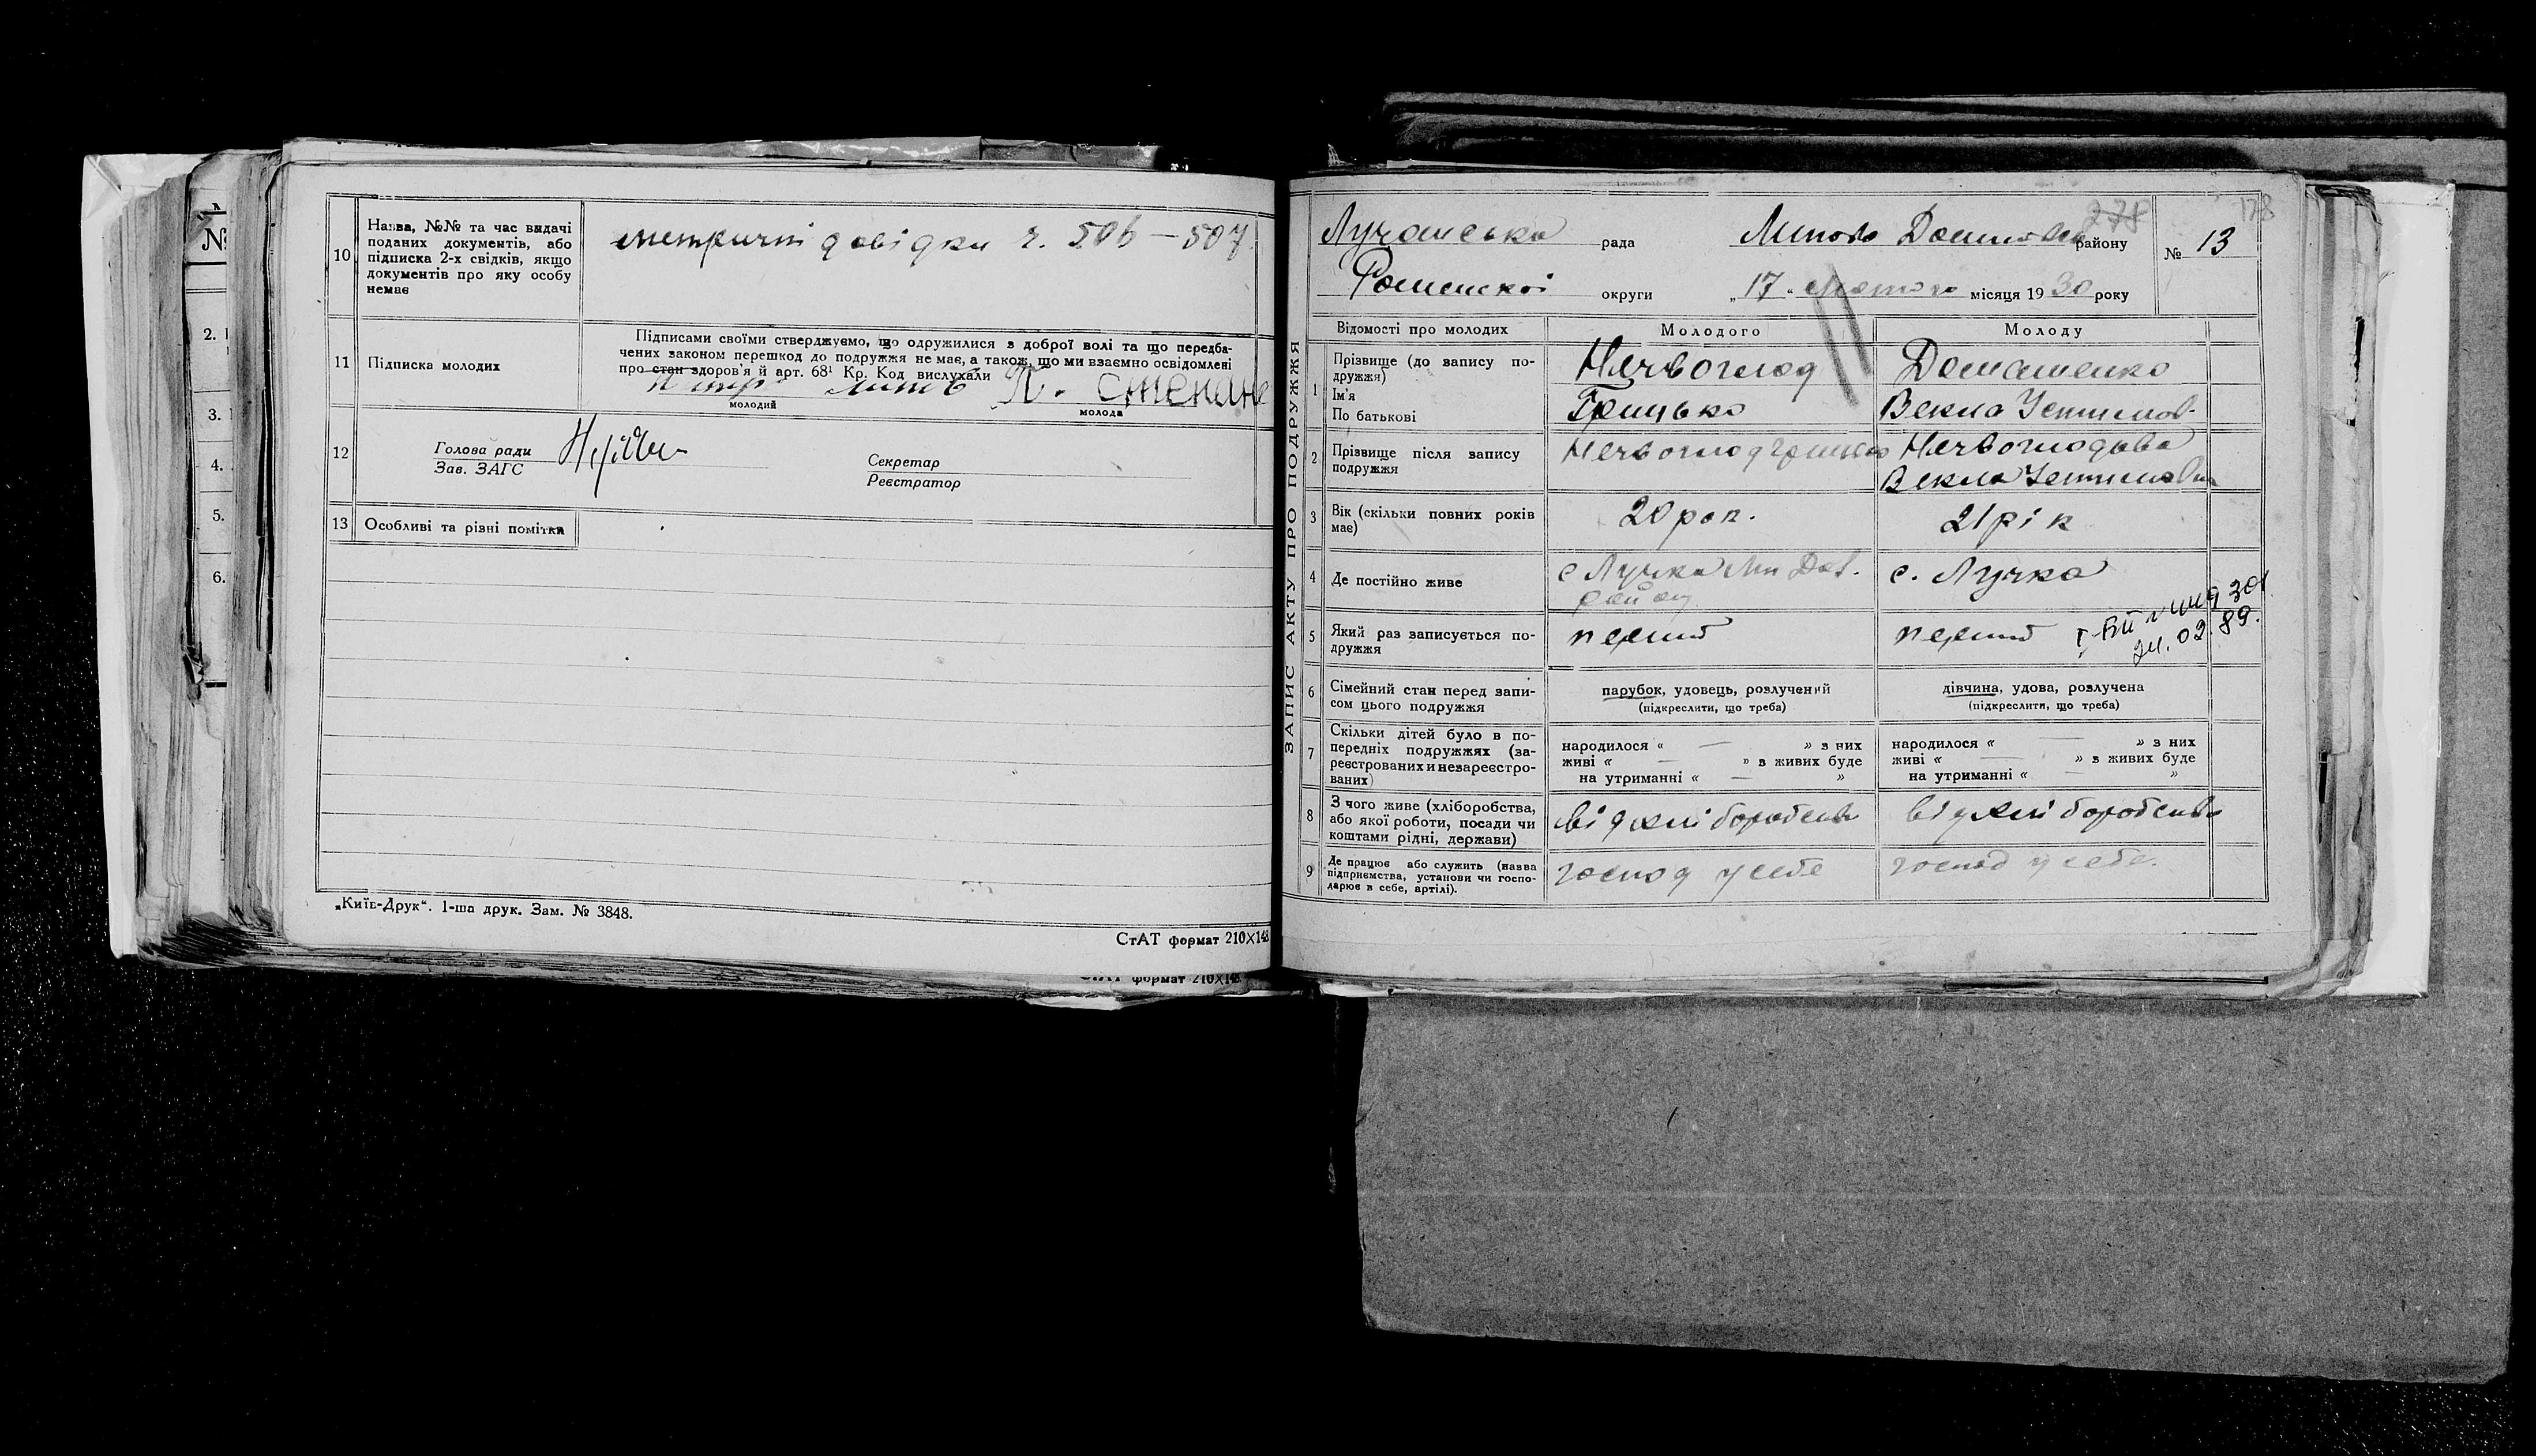 №
2.
3.
4.
5.
6.
10
Назва, №№ та час видачі
поданих документів, або
підписка 2-х свідків, якщо
документів про яку особу
немає
метричні довідки ч. 506 — 507.
11
Підписка молодих
Підписами своїми стверджуємо, що одружилися з доброї волі та що передба-
чених законом перешкод до подружжя не має, а також, що ми взаємно освідомлені
про стан здоров'я й арт. 68¹ Кр. Код вислухали
П. степане
молодий
молода
12
Голова ради
Зав. ЗАГС
Секретар
Реєстратор
13
Особливі та різні помітки
„Київ-Друк“. 1-ша друк. Зам. № 3848.
СтАТ формат 210×148
формат 210×148
ЗАПИС АКТУ ПРО ПОДРУЖЖЯ
278
178
Лучанська рада Липово Долинськ району
№ 13
Роменської округи „17“ лютого місяця 1930 року
Відомості про молодих
Молодого
Молоду
1
Прізвище (до запису по-
дружжя)
Ім'я
По батькові
Нечвоглод
Грицько
Домашенко
Векла Устимов-
2
Прізвище після запису
подружжя
Нечвоглод Грицько
Нечвоглодова
Векла Устимовна
3
Вік (скільки повних років
має)
20 рок.
21 рік
4
Де постійно живе
с Лучка Лип Дол.
район
с. Лучка
5
Який раз записується по-
дружжя
перший
перший
24.02.89.
6
Сімейний стан перед запи-
сом цього подружжя
парубок, удовець, розлучений
(підкреслити, що треба)
дівчина, удова, розлучена
(підкреслити, що треба)
7
Скільки дітей було в по-
передніх подружжях (за-
реєстрованих и незареєстро-
ваних)
народилося « — » з них
живі « — » в живих буде
на утриманні « — »
народилося « — » з них
живі « — » в живих буде
на утриманні « — »
8
З чого живе (хліборобства,
або якої роботи, посади чи
коштами рідні, держави)
від хліборобства
від хліборобства
9
Де працює або служить (назва
підприємства, установи чи госпо-
дарює в себе, артілі).
господ у себе
господ у себе.